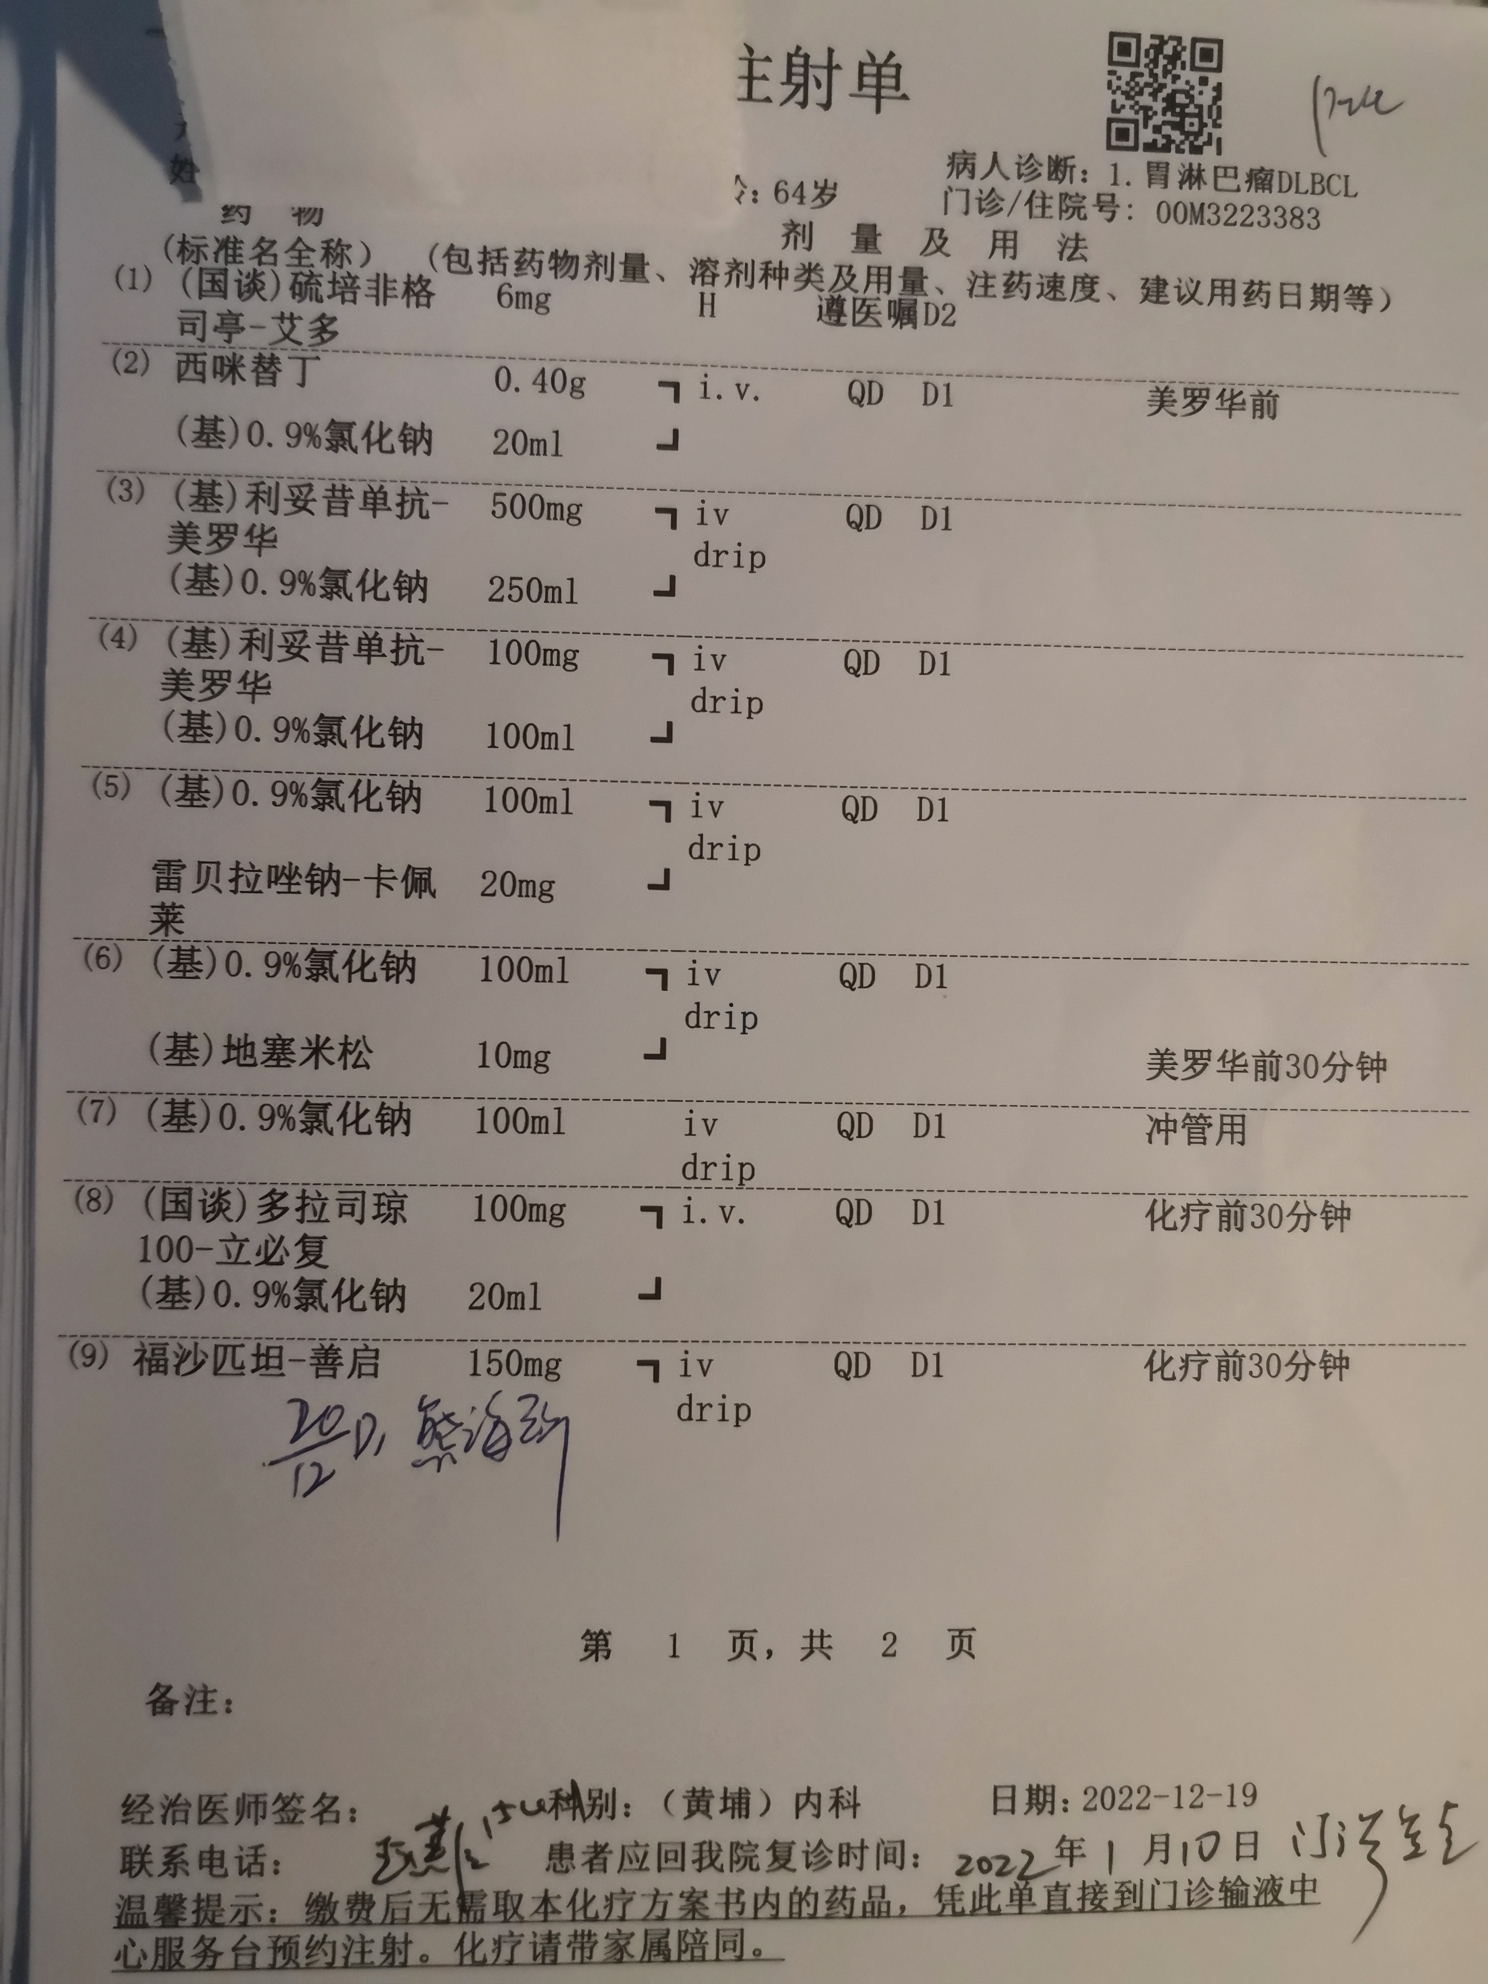 注射单
姓
龄: 64岁
病人诊断: 1. 胃淋巴瘤DLBCL
门诊/住院号: 00M3223383
药 物
剂 量 及 用 法
(标准名全称) (包括药物剂量、溶剂种类及用量、注药速度、建议用药日期等)
(1) (国谈)硫培非格 6mg H 遵医嘱D2
司亭-艾多
(2) 西咪替丁 0.40g i.v. QD D1 美罗华前
(基)0.9%氯化钠 20ml
(3) (基)利妥昔单抗- 500mg iv QD D1
美罗华 drip
(基)0.9%氯化钠 250ml
(4) (基)利妥昔单抗- 100mg iv QD D1
美罗华 drip
(基)0.9%氯化钠 100ml
(5) (基)0.9%氯化钠 100ml iv QD D1
drip
雷贝拉唑钠-卡佩 20mg
莱
(6) (基)0.9%氯化钠 100ml iv QD D1
drip
(基)地塞米松 10mg 美罗华前30分钟
(7) (基)0.9%氯化钠 100ml iv QD D1 冲管用
drip
(8) (国谈)多拉司琼 100mg i.v. QD D1 化疗前30分钟
100-立必复
(基)0.9%氯化钠 20ml
(9) 福沙匹坦-善启 150mg iv QD D1 化疗前30分钟
drip
20/12 D1
第 1 页, 共 2 页
备注:
经治医师签名: 科别: (黄埔)内科 日期: 2022-12-19
联系电话: 患者应回我院复诊时间: 2022年1月10日
温馨提示: 缴费后无需取本化疗方案书内的药品, 凭此单直接到门诊输液中
心服务台预约注射。化疗请带家属陪同。